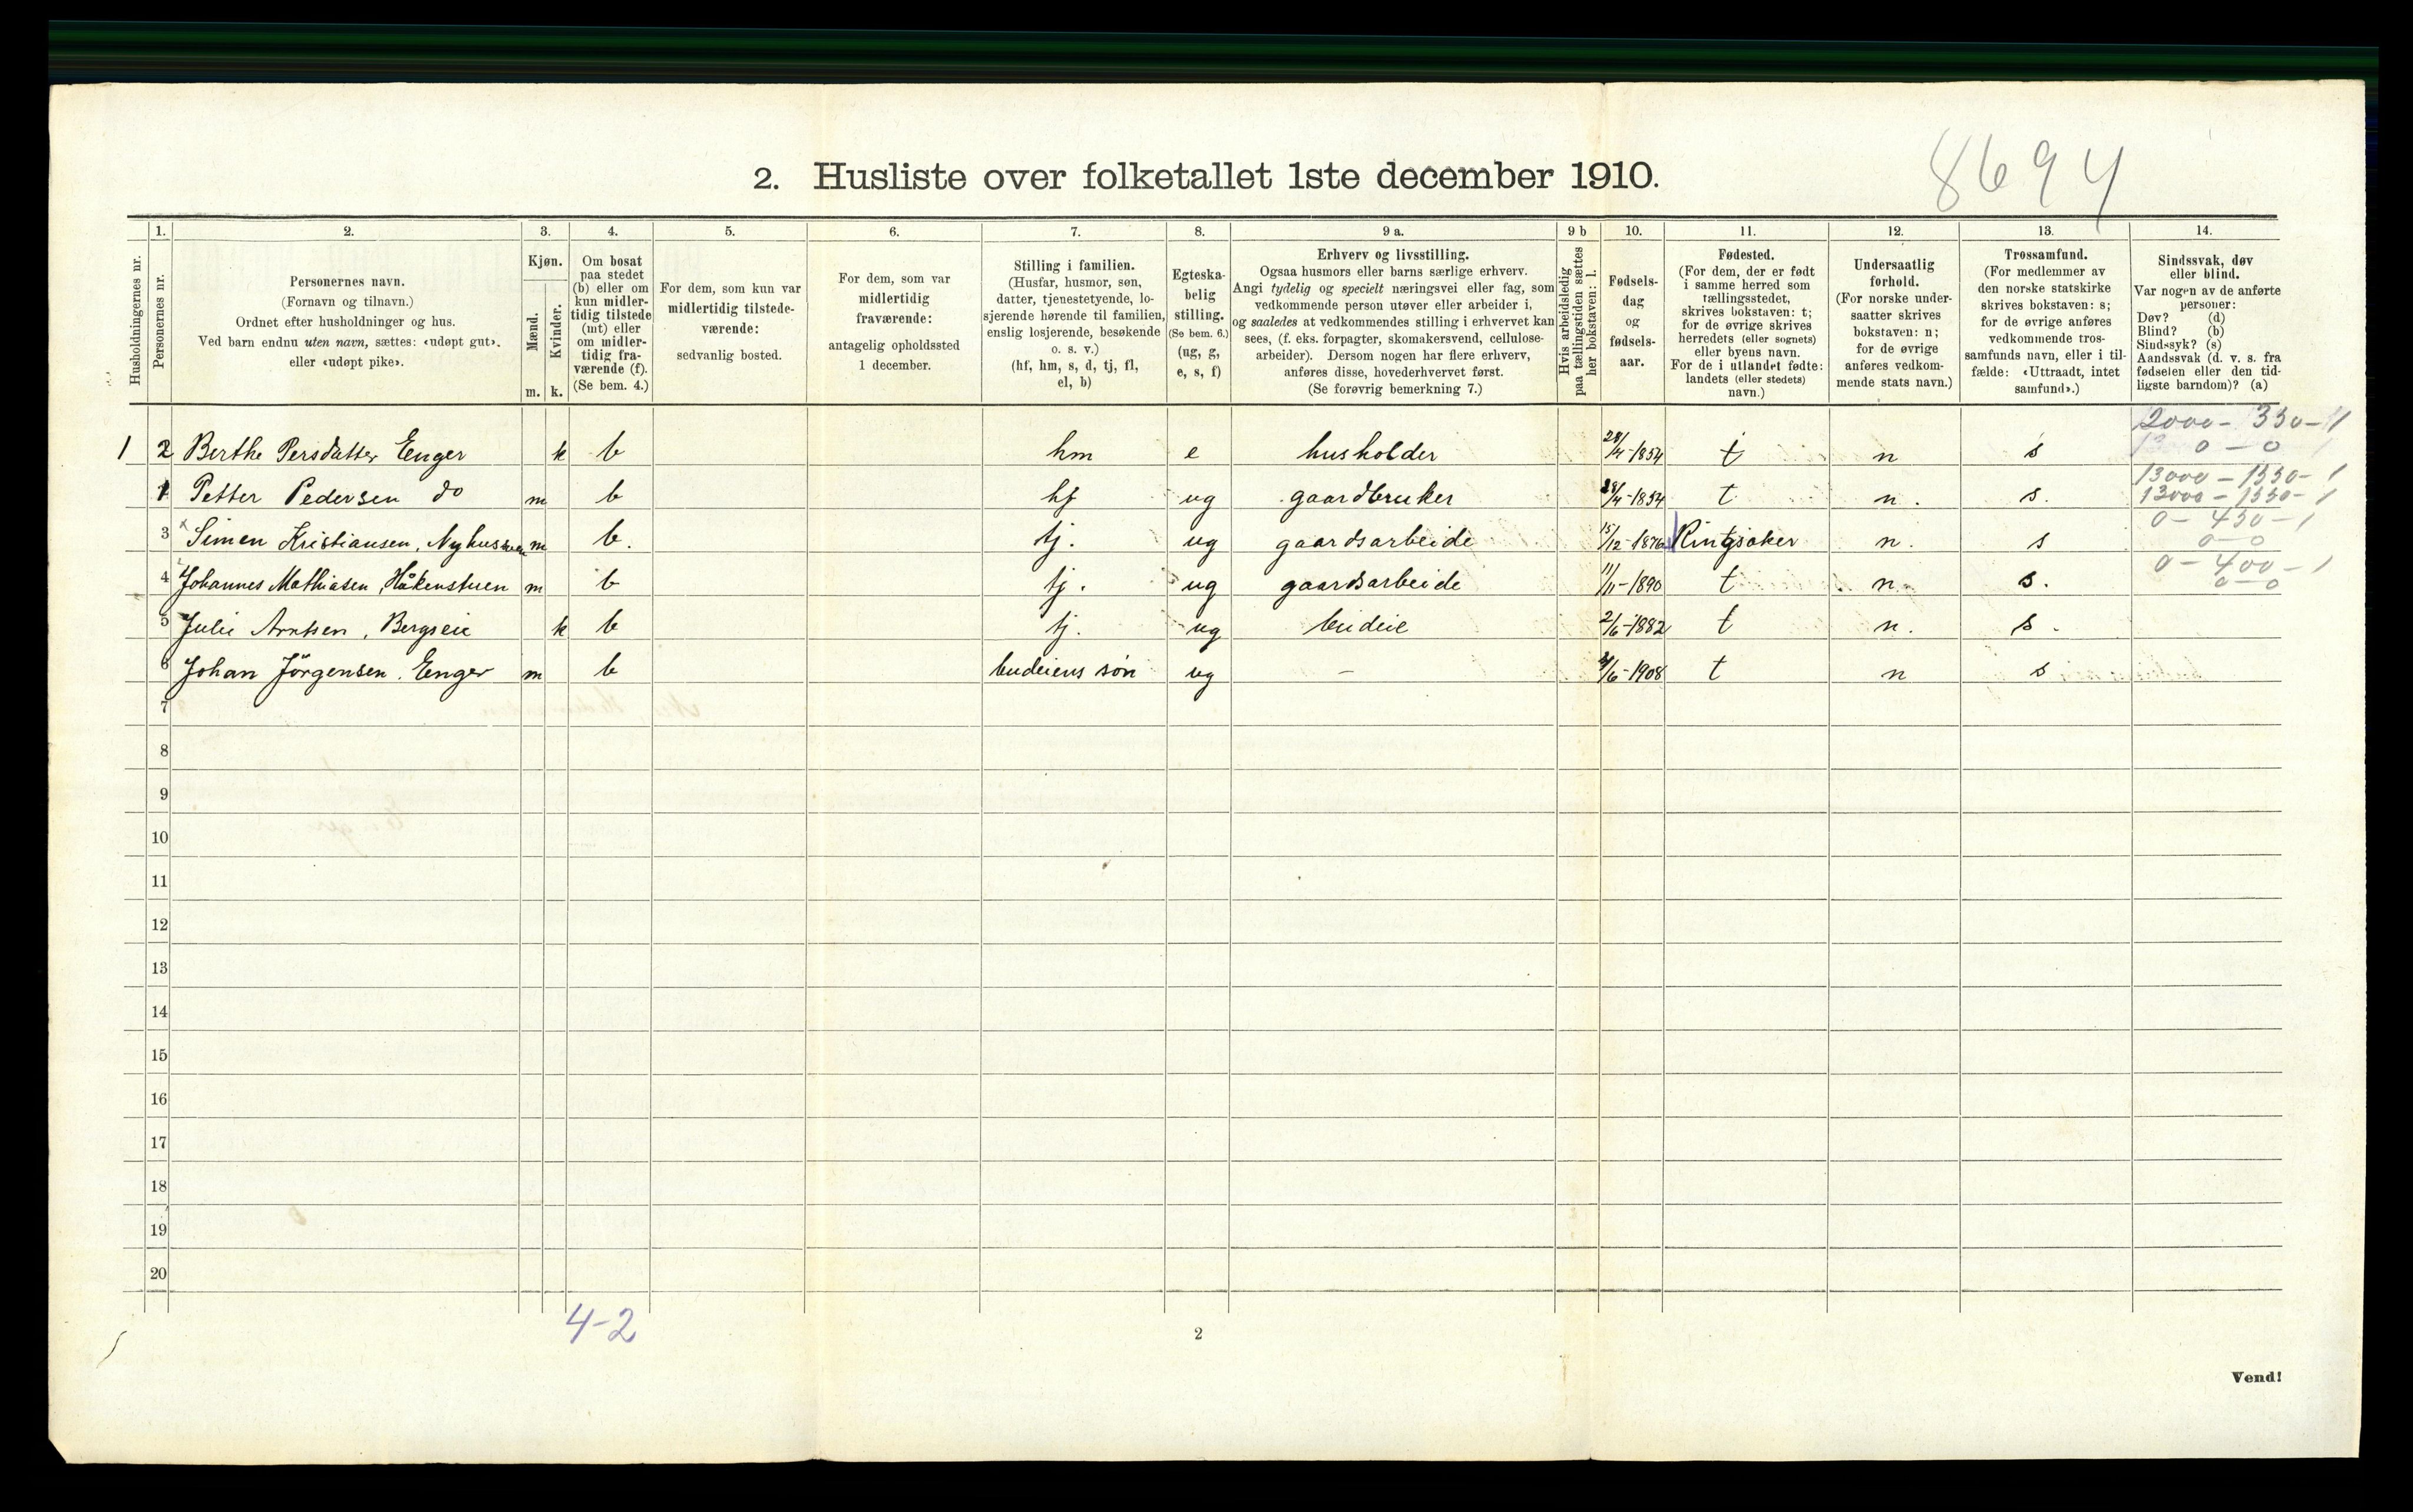 8694
2. Husliste over folketallet 1ste december 1910.
Husholdningernes nr.
1.
Personernes nr.
2.
Personernes navn.
(Fornavn og tilnavn.)
Ordnet efter husholdninger og hus.
Ved barn endnu uten navn, sættes: «udøpt gut».
eller «udøpt pike».
3.
Kjøn.
Mænd.
Kvinder.
m. k.
4.
Om bosat
paa stedet
(b) eller om
kun midler-
tidig tilstede
(mt) eller
om midler-
tidig fra-
værende (f).
(Se bem. 4.)
5.
For dem, som kun var
midlertidig tilstede-
værende:
sedvanlig bosted.
6.
For dem, som var
midlertidig
fraværende:
antagelig opholdssted
1 december.
7.
Stilling i familien.
(Husfar, husmor, søn,
datter, tjenestetyende, lo-
sjerende hørende til familien,
enslig losjerende, besøkende
o. s. v.)
(hf, hm, s, d, tj, fl,
el, b)
8.
Egteska-
belig
stilling.
(Se bem. 6.)
(ug, g,
e, s, f)
9 a.
Erhverv og livsstilling.
Ogsaa husmors eller barns særlige erhverv.
Angi tydelig og specielt næringsvei eller fag, som
vedkommende person utøver eller arbeider i,
og saaledes at vedkommendes stilling i erhvervet kan
sees, (f. eks. forpagter, skomakersvend, cellulose-
arbeider). Dersom nogen har flere erhverv,
anføres disse, hovederhvervet først.
(Se forøvrig bemerkning 7.)
9 b
Hvis arbeidsledig
paa tællingstiden sættes
her bokstaven: l.
10.
Fødsels-
dag
og
fødsels-
aar.
11.
Fødested.
(For dem, der er født
i samme herred som
tællingsstedet,
skrives bokstaven: t;
for de øvrige skrives
herredets (eller sognets)
eller byens navn.
For de i utlandet fødte:
landets (eller stedets)
navn.)
12.
Undersaatlig
forhold.
(For norske under-
saatter skrives
bokstaven: n;
for de øvrige
anføres vedkom-
mende stats navn.)
13.
Trossamfund.
(For medlemmer av
den norske statskirke
skrives bokstaven: s;
for de øvrige anføres
vedkommende tros-
samfunds navn, eller i til-
fælde: «Uttraadt, intet
samfund».)
14.
Sindssvak, døv
eller blind.
Var nogen av de anførte
personer:
Døv? (d)
Blind? (b)
Sindssyk? (s)
Aandssvak (d. v. s. fra
fødselen eller den tid-
ligste barndom)? (a)
1 2 Berthe Persdatter Enger k b hm e husholder 28/4-1854 t n s 0-0
1 Petter Pedersen do m b hf ug gaardbruker 28/4-1854 t n. s. 13000-1550-1
13000-1550-1
3 Simen Kristiansen, Nyhusveen m b. tj. ug gaardsarbeide 15/12-1876 Ringsaker n. s 0-450-1
0-0
4 Johannes Mathiasen, Håkenstuen m b tj. ug gaardsarbeide 11/11-1890 t n s. 0-400-1
0-0
5 Julie Arntsen, Bergseie k b tj. ug budeie 2/6-1882 t n. s.
6 Johan Jörgensen. Enger m b budeiens søn ug - /6-1908 t n s
7
8
9
10
11
12
13
14
15
16
17
18
19
20
4-2
2
Vend!